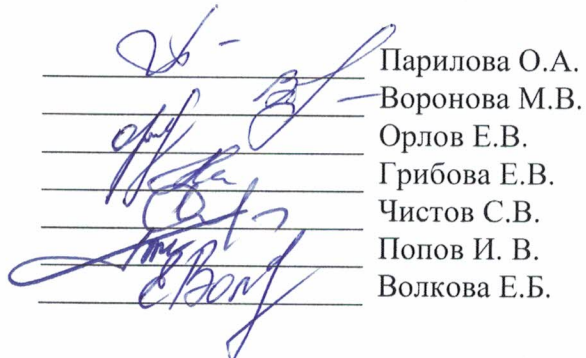 Парилова О.А.
Воронова М.В.
Орлов Е.В.
Грибова Е.В.
Чистов С.В.
Попов И. В.
Волкова Е.Б.